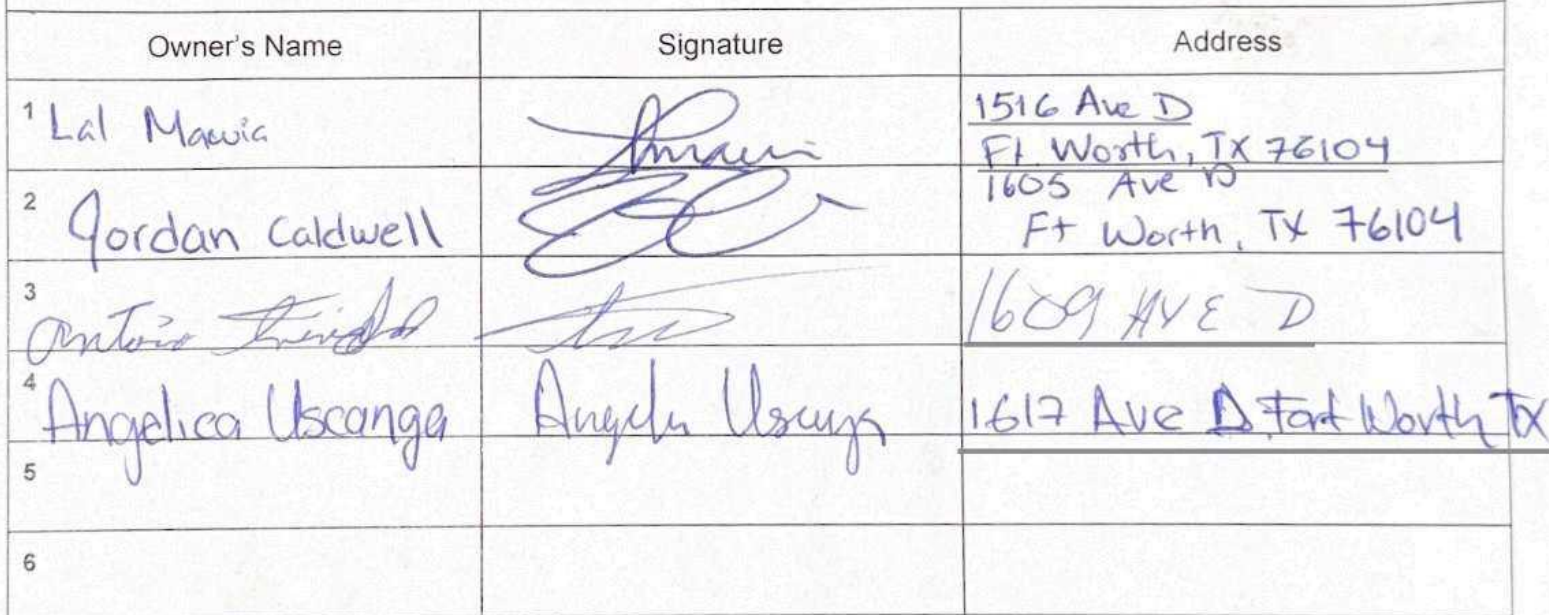 Owner's Name Signature Address
1 Lal Mawia
1516 Ave D
Ft. Worth, TX 76104
2 Jordan Caldwell
1605 Ave D
Ft Worth, TX 76104
3 Antonio 1609 AVE D
4 Angelica Uscanga Angela Uscanga 1617 Ave D Fort Worth TX
5
6